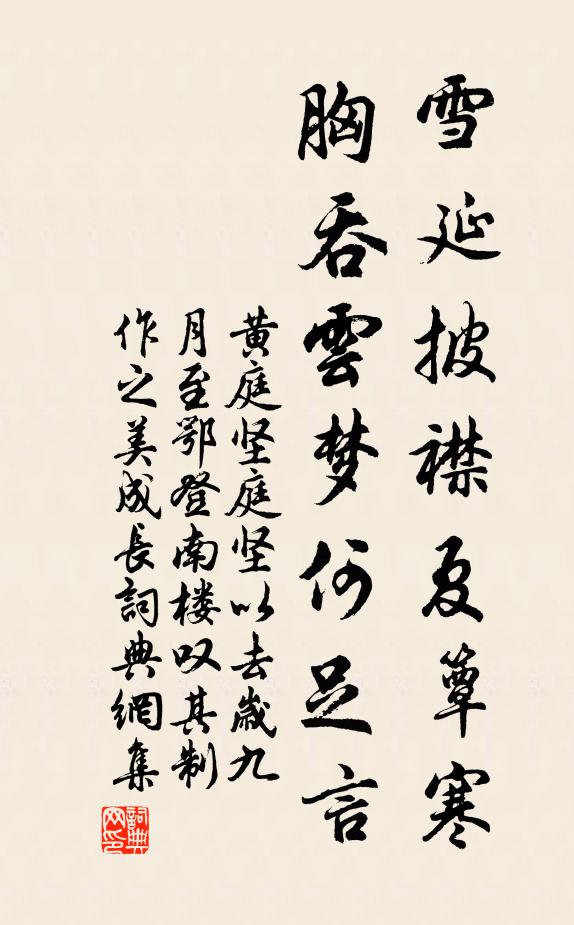 雪延披襟夏簟寒
胸吞雲梦何足言
黄庭坚庭坚以去歲九
月至鄂登南楼叹其制
作之美成長詞典網集
詞典
网印